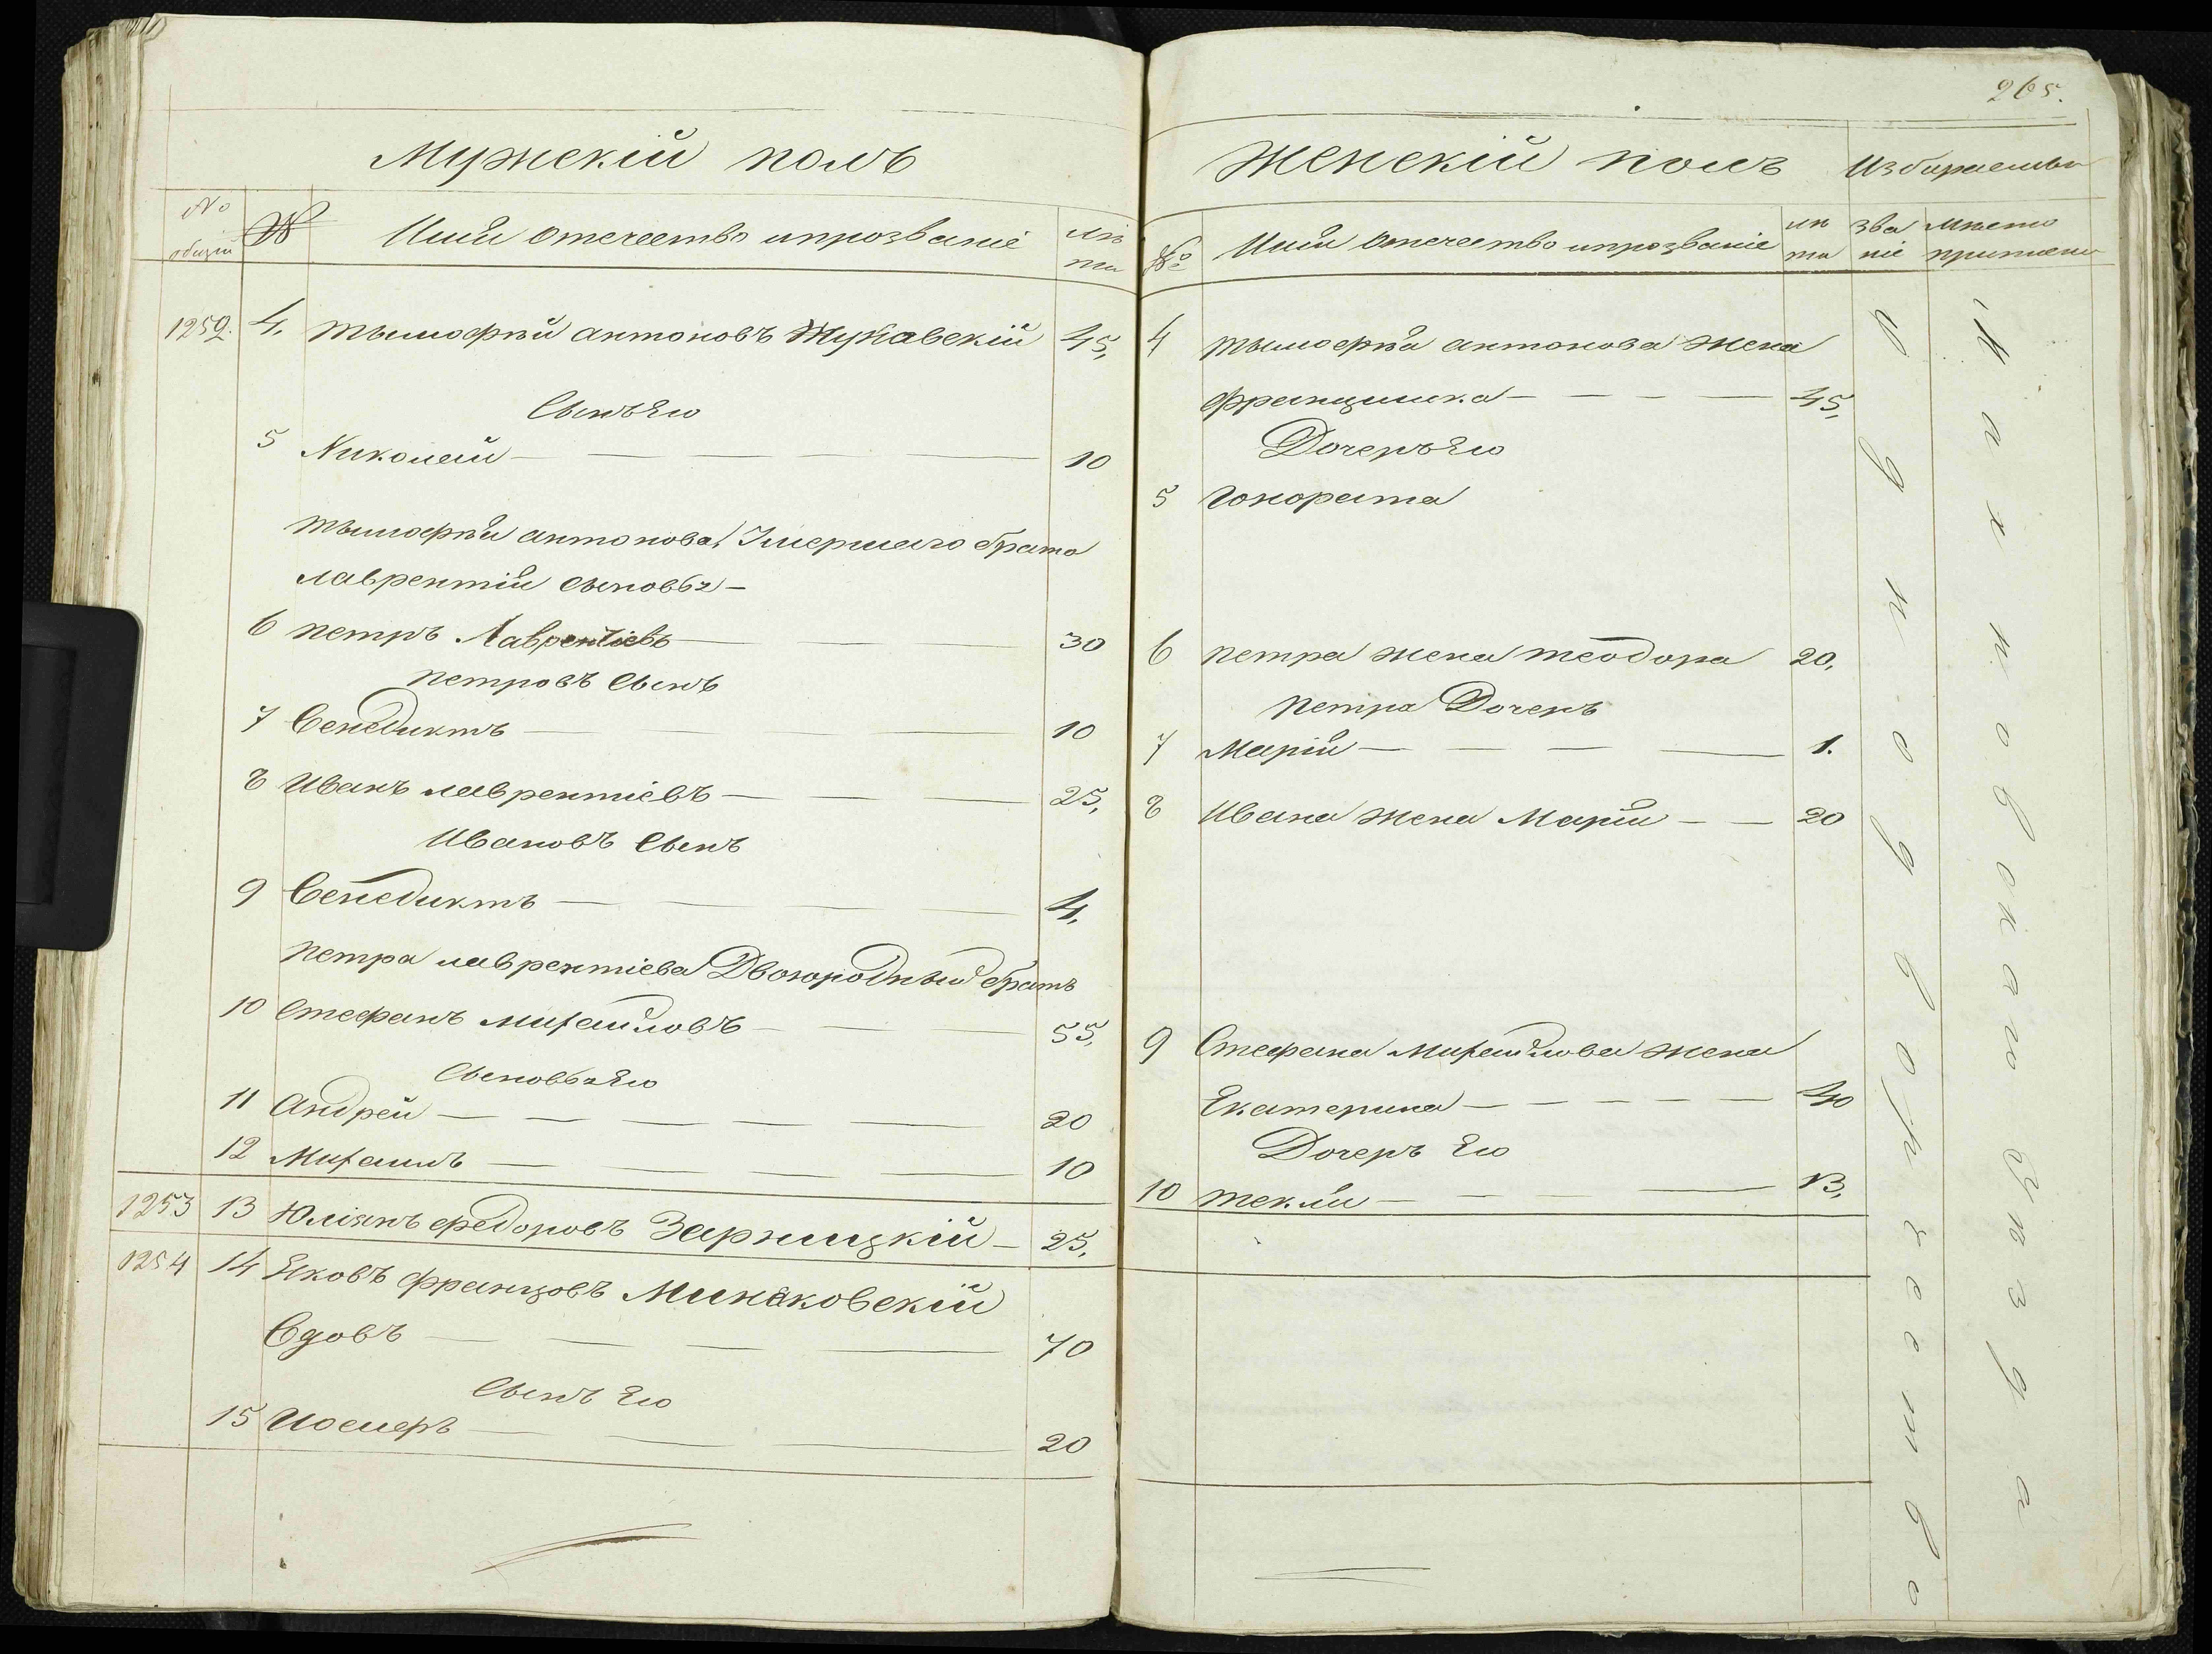 Мужскій полъ
№ общій
№
Имя отечество ипрозваніе
лѣ та
1252. 4. тымофѣй антоновъ Жукавскій 45,
Сынъ Его
5 Николай 10
тымофѣй антонова, Умершаго брата
лаврентія сыновья
6 петръ Лаврентіевъ 30
петровъ Сынъ
7 Венедиктъ 10
8 Иванъ лаврентіевъ 25,
Ивановъ Сынъ
9 Венедиктъ 4,
петра лаврентіева Двоюродный братъ
10 Стефанъ михайловъ 55,
Сыновья Его
11 Андрей 20
12 Михаилъ 10
1253 13 Юліянъ федоровъ Зарницкій 25,
1254 14 Яковъ францовъ Минаковскій
Вдовъ 70
Сынъ Его
15 Иосифъ 20
265.
Женскій полъ
Избирательн
№
Имя отечество ипрозваніе
лѣ та
зва ніе
мѣсто
4 тымофѣя антонова жена
францишка 45,
Дочеръ Его
5 гонората
6 петра жена теодора 20,
петра Дочеръ
7 Марія 1.
8 Ивана жена Марія 20
9 Стефана михайлова жена
Екатерина 40
Дочеръ Его
10 текля 13,
однодворчество
Махновскаго Уѣзда